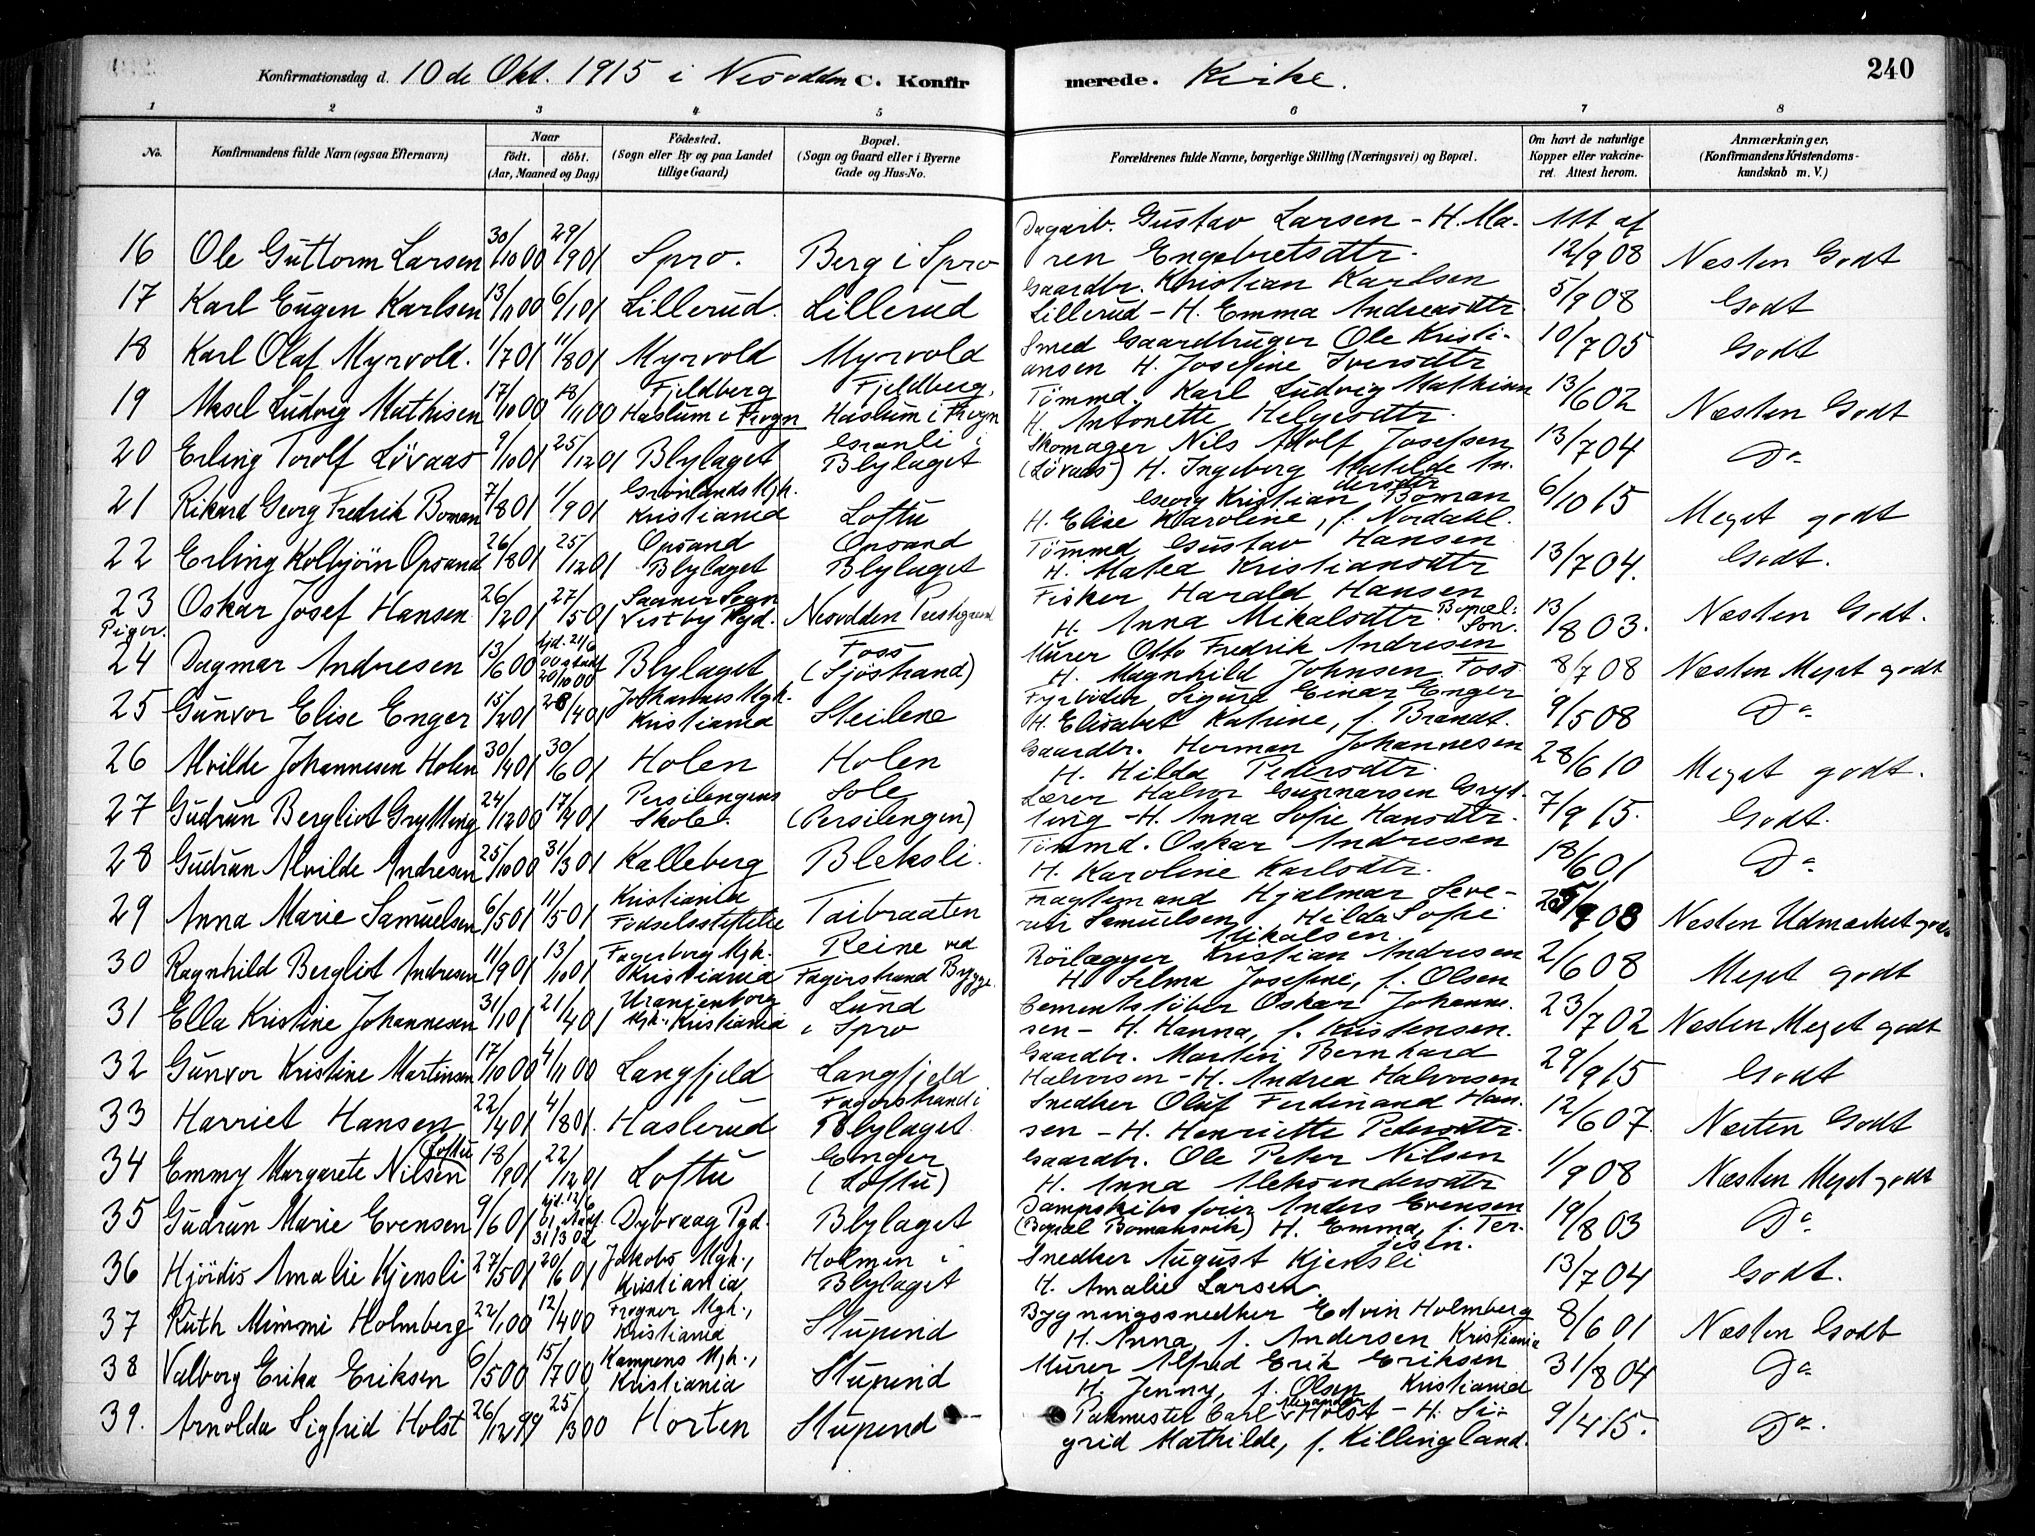 Konfirmationsdag d. 10de Okt. 1915 i Nesodden C. Konfirmerede. Kirke. 240
1 2 3 4 5 6 7 8
No. Konfirmandens fulde Navn (ogsaa Efternavn) Naar født. døbt. (Aar, Maaned og Dag) Fødested. (Sogn eller By og paa Landet tillige Gaard) Bopæl. (Sogn og Gaard eller i Byerne Gade og Hus-No. Forældrenes fulde Navne, borgerlige Stilling (Næringsvei) og Bopæl. Om havt de naturlige Kopper eller vakcineret. Attest herom. Anmærkninger. (Konfirmandens Kristendomskundskab m. V.)
16 Ole Guttorm Larsen 30/10 00 29/9 01 Spro. Berg i Spro Dagarb. Gustav Larsen - H. Maren Engebretsdtr. Att af 12/9 08 Næsten Godt
17 Karl Eugen Karlsen 13/11 00 6/1 01 Lillerud. Lillerud Gaardbr. Kristian Karlsen Lillerud - H. Emma Andreasdtr. 5/9 08 Godt
18 Karl Olaf Myrvold. 1/7 01 11/8 01 Myrvold Myrvold Smed Gaardbruger Ole Kristiansen H. Josefine Iversdtr 10/7 05 Godt
19 Aksel Ludvig Mathisen 17/10 00 18/11 00 Fjeldberg Haslum i Frogn Fjeldberg, Haslum i Frogn Tømmd. Karl Ludvig Mathisen H. Antonette Helgesdtr. 13/6 02 Næsten Godt
20 Erling Torolf Løvaas 9/10 01 25/12 01 Blylaget Granli i Blylaget Skomager Nils Adolf Josefsen (Løvaas) H. Ingeborg Matilde Andersdtr 13/7 04 Do
21 Rikard Georg Fredrik Boman 7/8 01 1/9 01 Grønlands Mgh. Kristiania Loftu Georg Kristian Boman H. Elise Karoline, f. Nordahl. 6/10 15 Meget godt
22 Erling Kolbjørn Opsand 26/8 01 25/12 01 Opsand Blylaget Opsand Blylaget Tømmd Gustav Hansen H. Matea Kristiansdtr 13/7 04. Godt.
23 Oskar Josef Hansen 26/2 01 27/5 01 Saaner Sogn Vestby Pgd. Nesodden Prestegaard Fisker Harald Hansen H. Anna Mikalsdtr. Bopæl: Son. 13/8 03. Næsten Godt.
Piger.
24 Dagmar Andresen 13/6 00 hjd. 21/6 00 stadf 20/10 00 Blylaget Foss (Sjøstrand) Murer Otto Fredrik Andresen H. Magnhild Johnsen Foss 8/7 08 Næsten Meget godt
25 Gunvor Elise Enger 15/2 01 28/4 01 Johannes Mgh. Kristiania Steilene Fyrbøder Sigurd Einar Enger H. Elisabet Katrine, f. Brandt. 9/5 08 Do
26 Alvilde Johannesen Holen 30/4 01 30/6 01 Holen Holen Gaardbr. Herman Johannesen H. Hilda Pedersdtr. 28/6 10 Meget godt.
27 Gudrun Bergliot Grytting 24/12 00 17/4 01 Persilengens Skole. Sole (Persilengen) Lærer Halvor Gunnarsen Grytting - H. Anna Sofie Hansdtr. 7/9 15. Godt.
28 Gudrun Alvilde Andresen 25/10 00 31/3 01 Kalleberg Bleksli. Tømmd. Oskar Andresen H. Karoline Karlsdtr. 18/6 01 Do
29 Anna Marie Samuelsen 6/5 01 11/5 01 Kristiania Fødselsstiftelse Taibraaten Fragtemand Hjalmar Severin Samuelsen Hilda Sofie Mikalsen. 25/9 08 Næsten Udmærket godt
30 Ragnhild Bergliot Andresen 11/9 01 13/10 01 Fagerborg Mgh. Kristiania Reine ved Fagerstrand Brygge. Rørlægger Kristian Andresen H. Selma Josefine, f. Olsen 2/6 08 Meget godt
31 Ella Kristine Johannesen 31/1 01 21/4 01 Uranienborg Mgh. Kristiania Lund i Spro Cementstøber Oskar Johannesen - H. Hanna, f. Kristensen. 23/7 02 Næsten Meget godt
32 Gunvor Kristine Martinsen 17/10 00 4/11 00 Langfjeld Langfjeld Gaardbr. Martin Bernhard Halvorsen - H. Andrea Halvorsen 29/9 15 Godt
33 Harriet Hansen 22/4 01 4/8 01. Haslerud Fagerstrand i Blylaget Snedker Oluf Ferdinand Hansen - H. Henriette Pedersdtr. 12/6 07. Næsten Godt
34 Emmy Margarete Nilsen (Loftu 18/9 01 22/12 01 Loftu Enger (Loftu) Gaardbr. Ole Peter Nilsen H. Anna Aleksandersdtr 1/9 08 Næsten Meget godt
35 Gudrun Marie Evensen 9/6 01 hjd. 12/6 01 stadf. 31/3 02 Dybvaag Pgd. Blylaget Dampskibsfører Anders Evensen (Bopæl Bomansvik) H. Emma, f. Terjesen. 19/8 03 Do
36 Hjørdis Amalie Kjensli 27/5 01 20/6 01 Jakobs Mgh., Kristiania Holmen i Blylaget Snedker August Kjensli H. Amalie Larsen 13/7 04 Godt.
37 Ruth Mimmi Holmberg 22/1 00 12/4 00 Frogner Mgh., Kristiania Stupend Bygningssnedker Edvin Holmberg H. Anna, f. Andersen Kristiania 8/6 01 Næsten Godt
38 Valborg Erika Eriksen 6/5 00 15/7 00 Kampens Mgh., Kristiania Stupend Murer Alfred Erik Eriksen H. Jenny, f. Olsen Kristiania 31/8 04 Do
39. Arnolda Sigfrid Holst 26/12 99 25/3 00 Horten Stupend Pakmester Carl Alexander Holst - H. Sigrid Mathilde, f. Killingland. 9/4 15. Do.